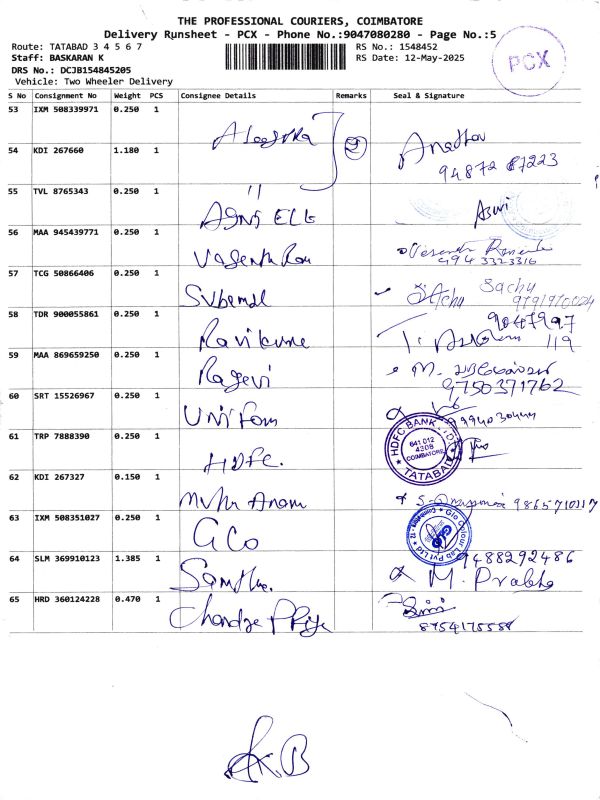 THE PROFESSIONAL COURIERS, COIMBATORE
Delivery Runsheet - PCX - Phone No.:9047080280 - Page No.:5
Route: TATABAD 3 4 5 6 7
Staff: BASKARAN K
DRS No.: DCJB154845205
Vehicle: Two Wheeler Delivery
RS No.: 1548452
RS Date: 12-May-2025
PCX
S No Consignment No Weight PCS Consignee Details Remarks Seal & Signature
53 IXM 508339971 0.250 1
54 KDI 267660 1.180 1 2
94872 87223
55 TVL 8765343 0.250 1 "
AGNI ELE Aswi
56 MAA 945439771 0.250 1
9943323316
57 TCG 50866406 0.250 1
Sachu Sachu
58 TDR 900055861 0.250 1
Ravikume
9047997
119
59 MAA 869659250 0.250 1
Ragevi M.
9750371762
60 SRT 15526967 0.250 1
Uniform
61 TRP 7888390 0.250 1
HDFC.
HDFC BANK LTD
641 012
4208
COIMBATORE
TATABAD
62 KDI 267327 0.150 1
9865710117
63 IXM 508351027 0.250 1
GCO
Glo Colour Lab Pvt Ltd
GLO
64 SLM 369910123 1.385 1
9488292486
M. Prabha
65 HRD 360124228 0.470 1
Chandra Priya
8754175588
K.B